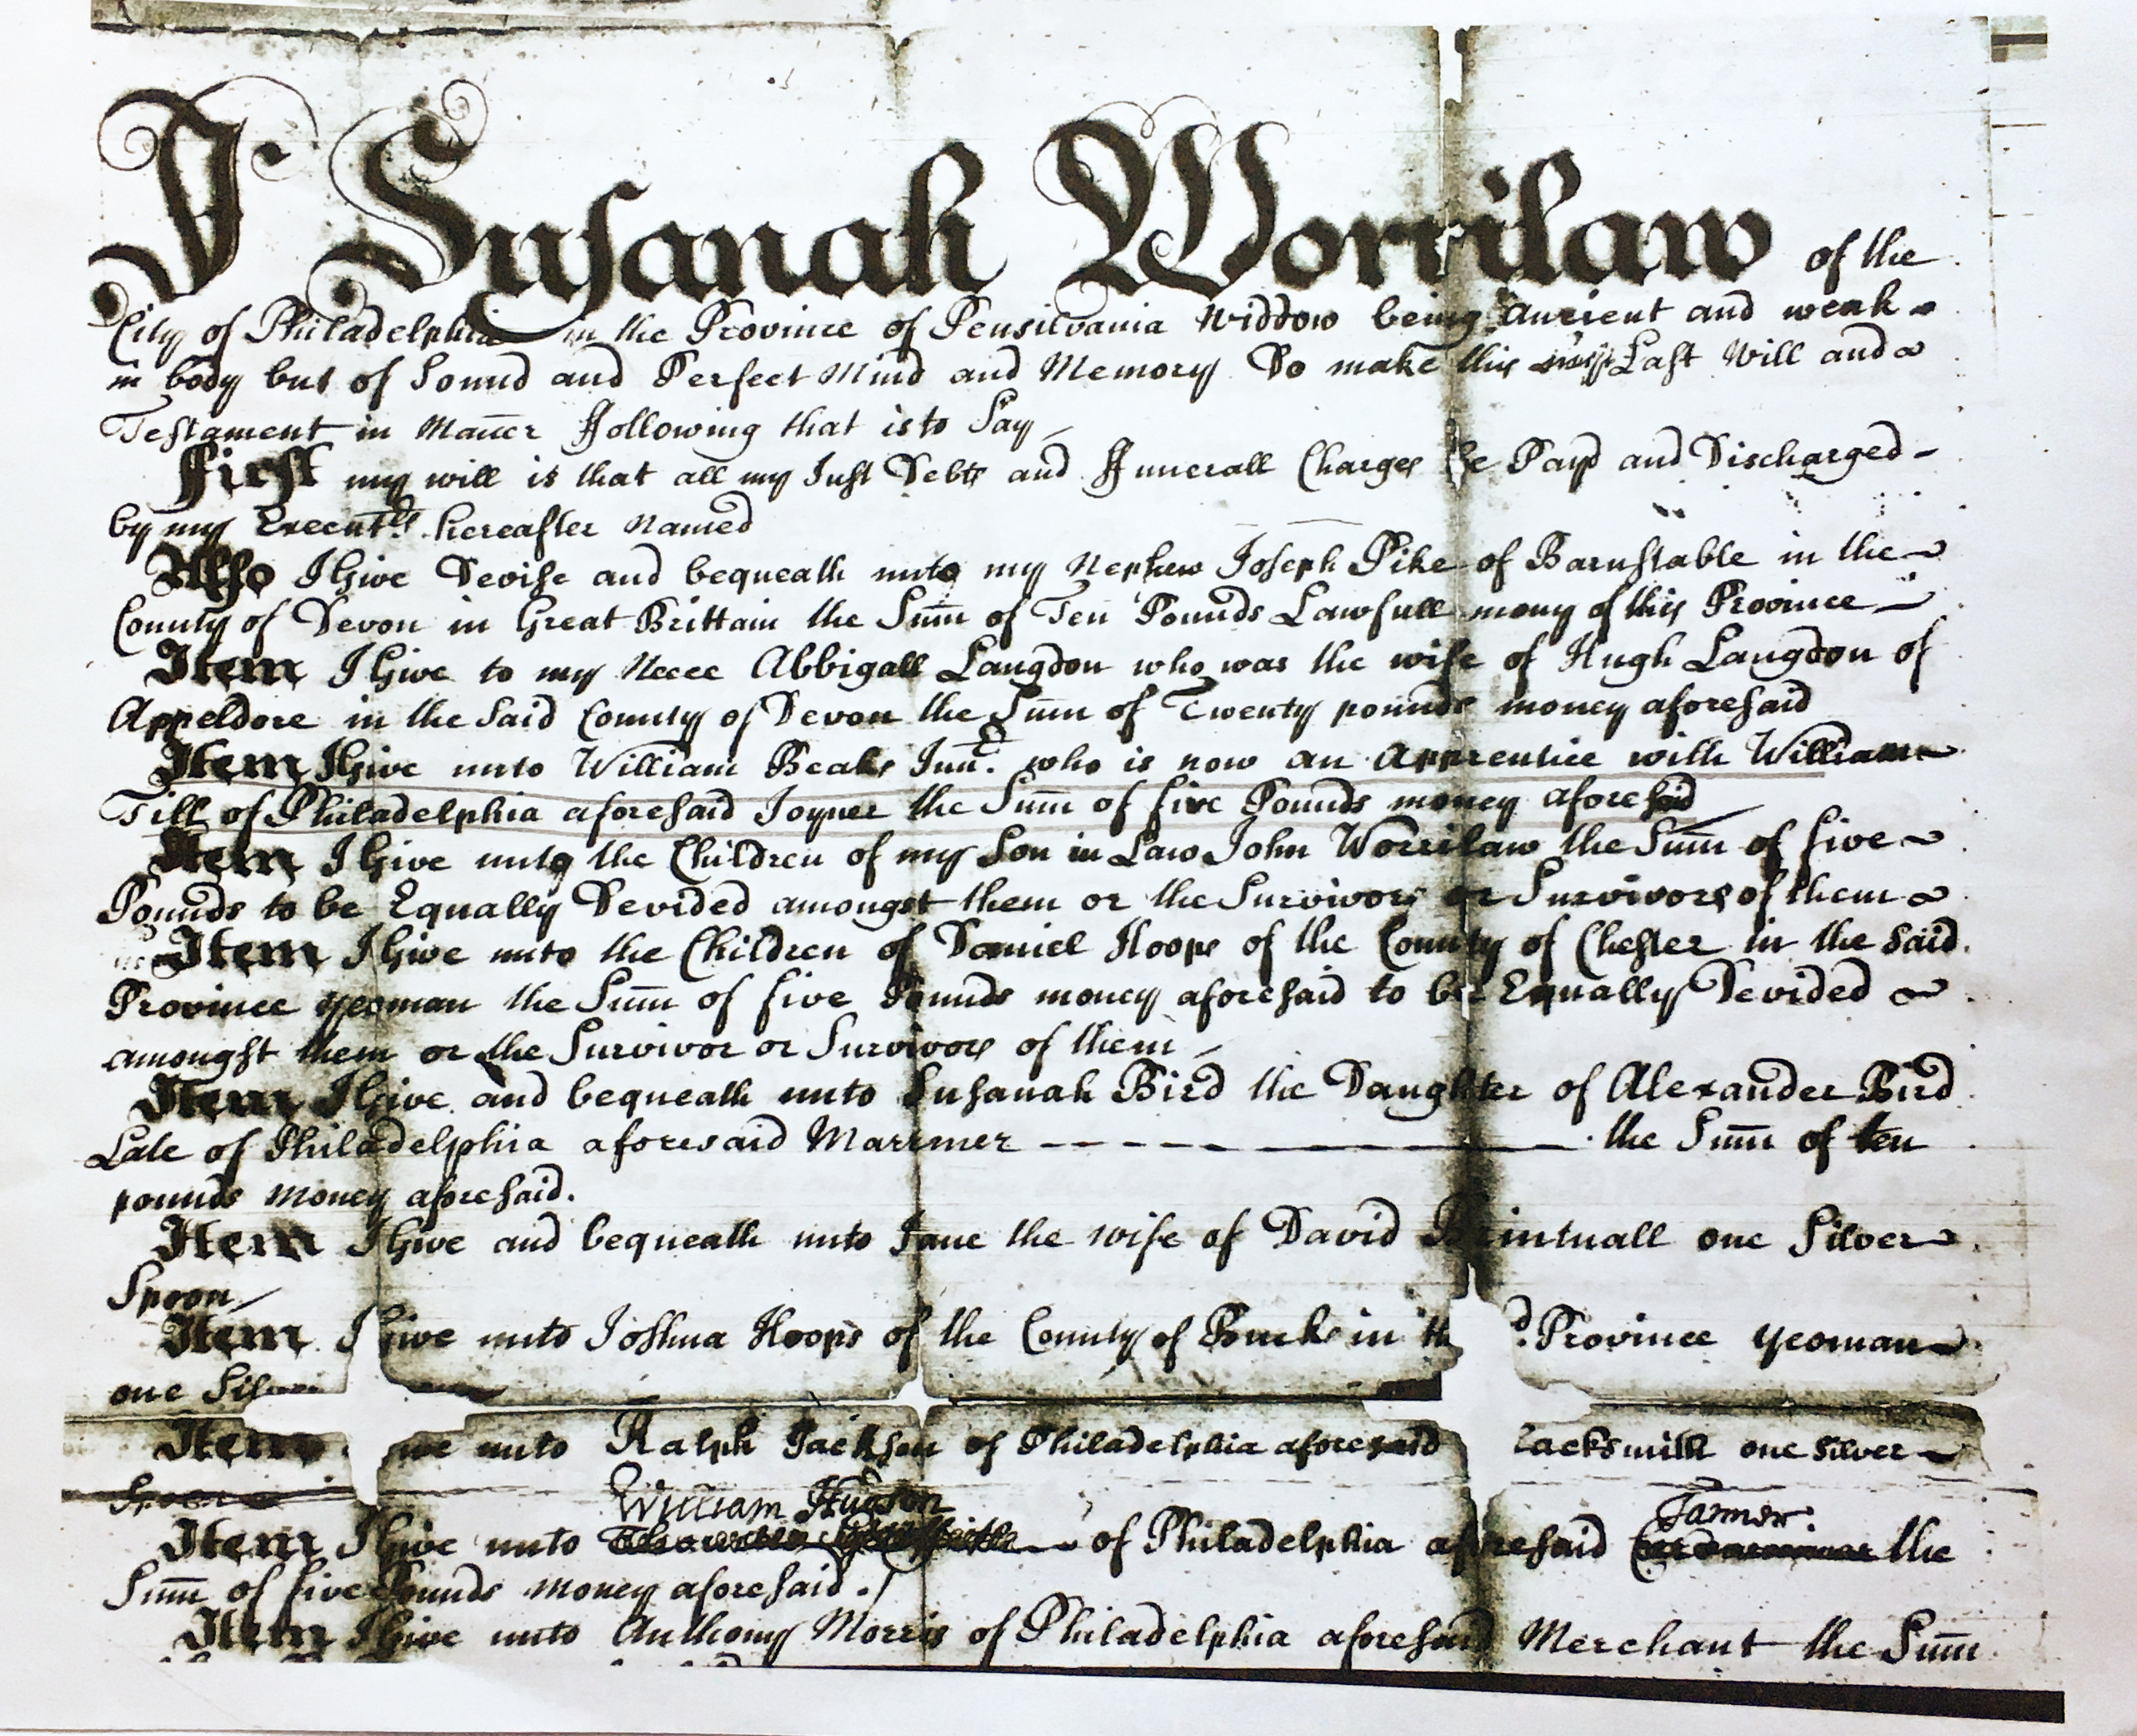 I Susanah Worrilaw of the
City of Philadelphia in the Province of Pensilvania Widdow being Ancient and weak
in body but of Sound and Perfect Mind and Memory Do make this my Last Will and
Testament in Mañer Following that is to Say
First my will is that all my Just Debts and Funerall Charges be Payd and Discharged
by my Execut.rs hereafter Named
Also I Give Devise and bequeath unto my Nephew Joseph Pike of Barnstable in the
County of Devon in Great Brittain the Sum̄ of Ten Pounds Lawfull mony of this Province
Item I Give to my Neece Abbigall Langdon who was the wife of Hugh Langdon of
Appeldore in the Said County of Devon the Sum̄ of Twenty pounds money aforesaid
Item I Give unto William Beaks Jun.r who is now an Apprentice with William
Till of Philadelphia aforesaid Joyner the Sum̄ of five Pounds money aforesaid
Item I Give unto the Children of my Son in Law John Worrilaw the Sum̄ of five
Pounds to be Equally Devided amongst them or the Survivors or Survivors of them
Item I Give unto the Children of Daniel Hoops of the County of Chester in the Said
Province yeoman the Sum̄ of five Pounds money aforesaid to be Equally Devided
amongst them or the Survivor or Survivors of them
Item I Give and bequeath unto Susanah Bird the Daughter of Alexander Bird
Late of Philadelphia aforesaid Marriner the Sum̄ of ten
pounds Money aforesaid.
Item I Give and bequeath unto Jane the wife of David Brintnall one Silver
Spoon
Item I Give unto Joshua Hoops of the County of Bucks in th d. Province yeoman
one Silver
Item ive unto Ralph Jackson of Philadelphia aforesaid lacksmith one Silver
Spoon
William Hudson Tanner
Item I Give unto of Philadelphia aforesaid the
Sum̄ of five Pounds Money aforesaid.
Item I Give unto Anthony Morris of Philadelphia aforesaid Merchant the Sum̄